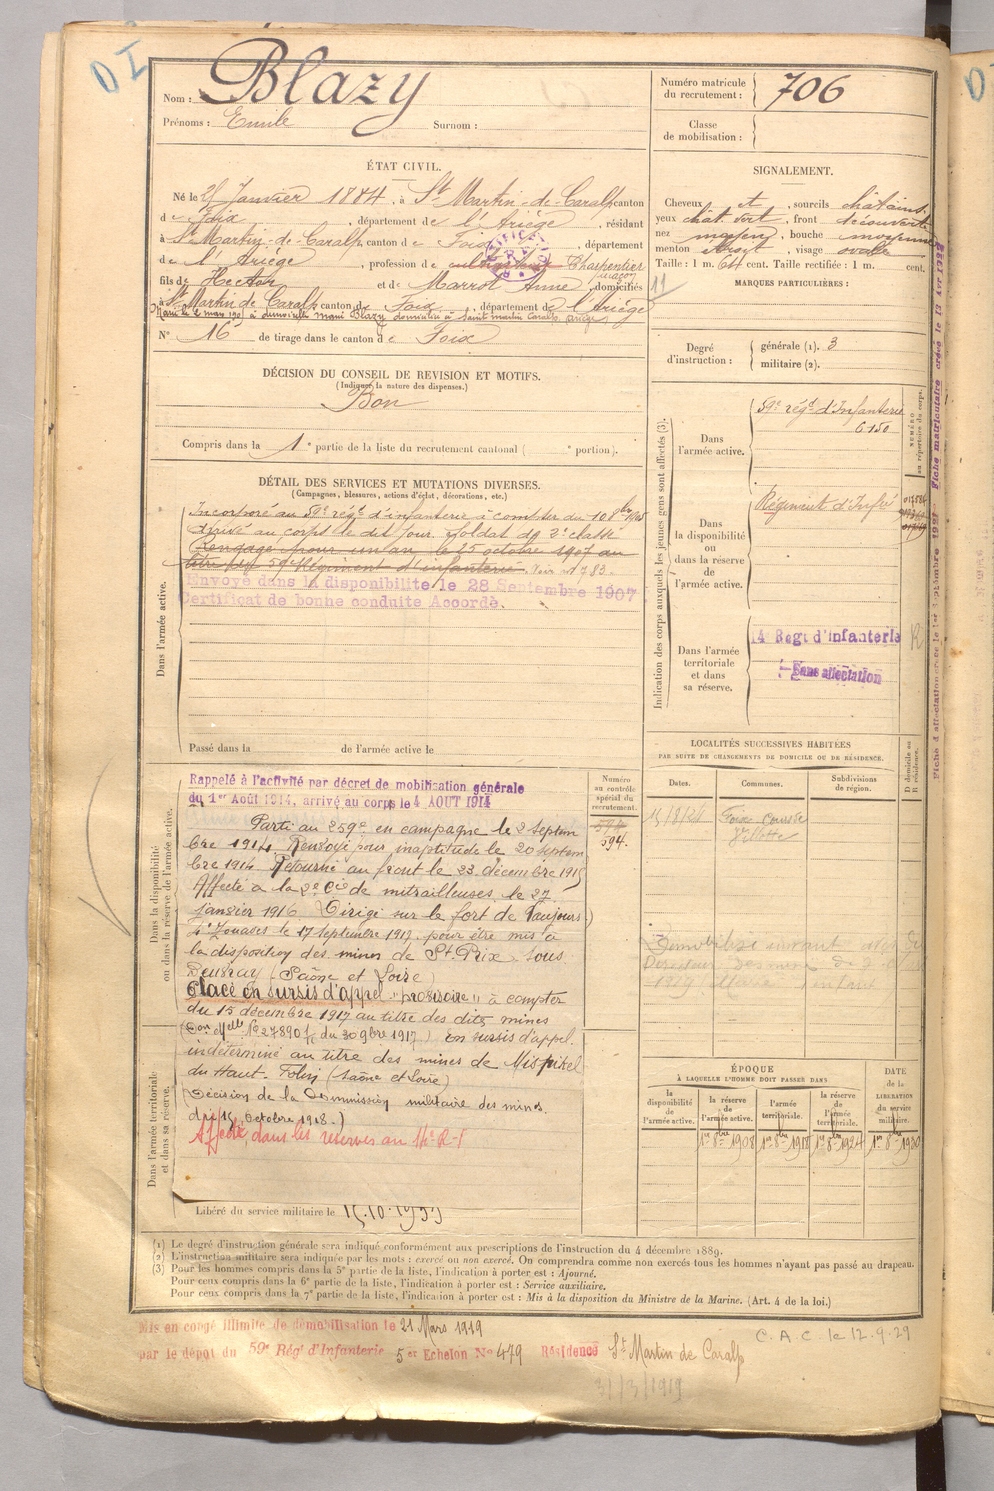 DI
Nom : Blazy
Prénoms : Emile Surnom :
Numéro matricule du recrutement : 706
Classe de mobilisation :
ÉTAT CIVIL.
Né le Janvier 1884, à St Martin-de-Caralp canton
de Foix, département de l'Ariège, résidant
à St Martin-de-Caralp canton de Foix, département
de l'Ariège, profession de cultivateur Charpentier
fils de Hector et de Marrot Anne, domiciliés
à St Martin de Caralp canton de Foix, département de l'Ariège
N° 16 de tirage dans le canton de Foix
SIGNALEMENT.
Cheveux et, sourcils châtains
yeux chât. vert, front découvert
nez moyen, bouche moyenne
menton étroit, visage ovale
Taille : 1 m. 64 cent. Taille rectifiée : 1 m. cent.
MARQUES PARTICULIÈRES :
Degré d'instruction : générale (1). 3
militaire (2).
DÉCISION DU CONSEIL DE REVISION ET MOTIFS.
(Indiquer la nature des dispenses.)
Bon
Compris dans la 1re partie de la liste du recrutement cantonal ( e portion).
DÉTAIL DES SERVICES ET MUTATIONS DIVERSES.
(Campagnes, blessures, actions d'éclat, décorations, etc.)
Dans l'armée active.
Incorporé au 59e régt d'infanterie à compter du 10 8bre 1905
Arrivé au corps le dit jour. Soldat de 2e classe
Rengagé pour un an le 25 octobre 1907 au
titre du 59e Régiment d'infanterie. Voir n° 783.
Envoyé dans la disponibilité le 28 Septembre 1907
Certificat de bonne conduite Accordé.
Passé dans la de l'armée active le
Indication des corps auxquels les jeunes gens sont affectés (3).
NUMÉRO au répertoire du corps.
Dans l'armée active.
59e régt d'Infanterie
6150
Dans la disponibilité ou dans la réserve de l'armée active.
Régiment d'Infie
Dans l'armée territoriale et dans sa réserve.
14e Regt d'infanterie
Sans affectation
Fiche matriculaire créée le 13 Avr 1927
LOCALITÉS SUCCESSIVES HABITÉES
PAR SUITE DE CHANGEMENTS DE DOMICILE OU DE RÉSIDENCE.
Dates. Communes. Subdivisions de région. D domicile ou R résidence.
Foix
Dans la disponibilité ou dans la réserve de l'armée active.
Numéro au contrôle spécial du recrutement.
594.
Rappelé à l'activité par décret de mobilisation générale
du 1er Août 1914, arrivé au corps le 4 AOUT 1914
Parti au 259e en campagne le 2 Septem
bre 1914. Renvoyé pour inaptitude le 20 septem
bre 1914. Retourné au front le 23 décembre 1915
Affecté à la 2e Cie de mitrailleuses le 27
janvier 1916 Dirigé sur le fort de Vaujours
4e Zouaves le 17 septembre 1917. pour être mis à
la disposition des mines de St. Prix sous
Beuvray (Saône et Loire)
Placé en sursis d'appel "provisoire" à compter
du 15 décembre 1917 au titre des dites mines
(Don Melle No 27890 du 30 9bre 1917) En sursis d'appel
indéterminé au titre des mines de Mispikel
du Haut-Folin (Saône et Loire)
(Décision de la Commission militaire des mines.
du 15 Octobre 1918.)
Affecté dans les réserves au 14e R.I
Dans l'armée territoriale et dans sa réserve.
ÉPOQUE
À LAQUELLE L'HOMME DOIT PASSER DANS
la disponibilité de l'armée active. la réserve de l'armée active. l'armée territoriale. la réserve de l'armée territoriale. DATE de la LIBÉRATION du service militaire.
1er 8bre 1908 1er 8bre 1918 1er 8bre 1924 1er 8bre 1930
Libéré du service militaire le 15.10.1933
(1) Le degré d'instruction générale sera indiqué conformément aux prescriptions de l'instruction du 4 décembre 1889.
(2) L'instruction militaire sera indiquée par les mots : exercé ou non exercé. On comprendra comme non exercés tous les hommes n'ayant pas passé au drapeau.
(3) Pour les hommes compris dans la 5e partie de la liste, l'indication à porter est : Ajourné.
Pour ceux compris dans la 6e partie de la liste, l'indication à porter est : Service auxiliaire.
Pour ceux compris dans la 7e partie de la liste, l'indication à porter est : Mis à la disposition du Ministre de la Marine. (Art. 4 de la loi.)
Mis en congé illimité de démobilisation le 21 Mars 1919
par le dépôt du 59e Rég' d'Infanterie 5e Echelon No 479 Résidence St Martin de Caralp
C.A.C. le 12.9.29
31/3/1919